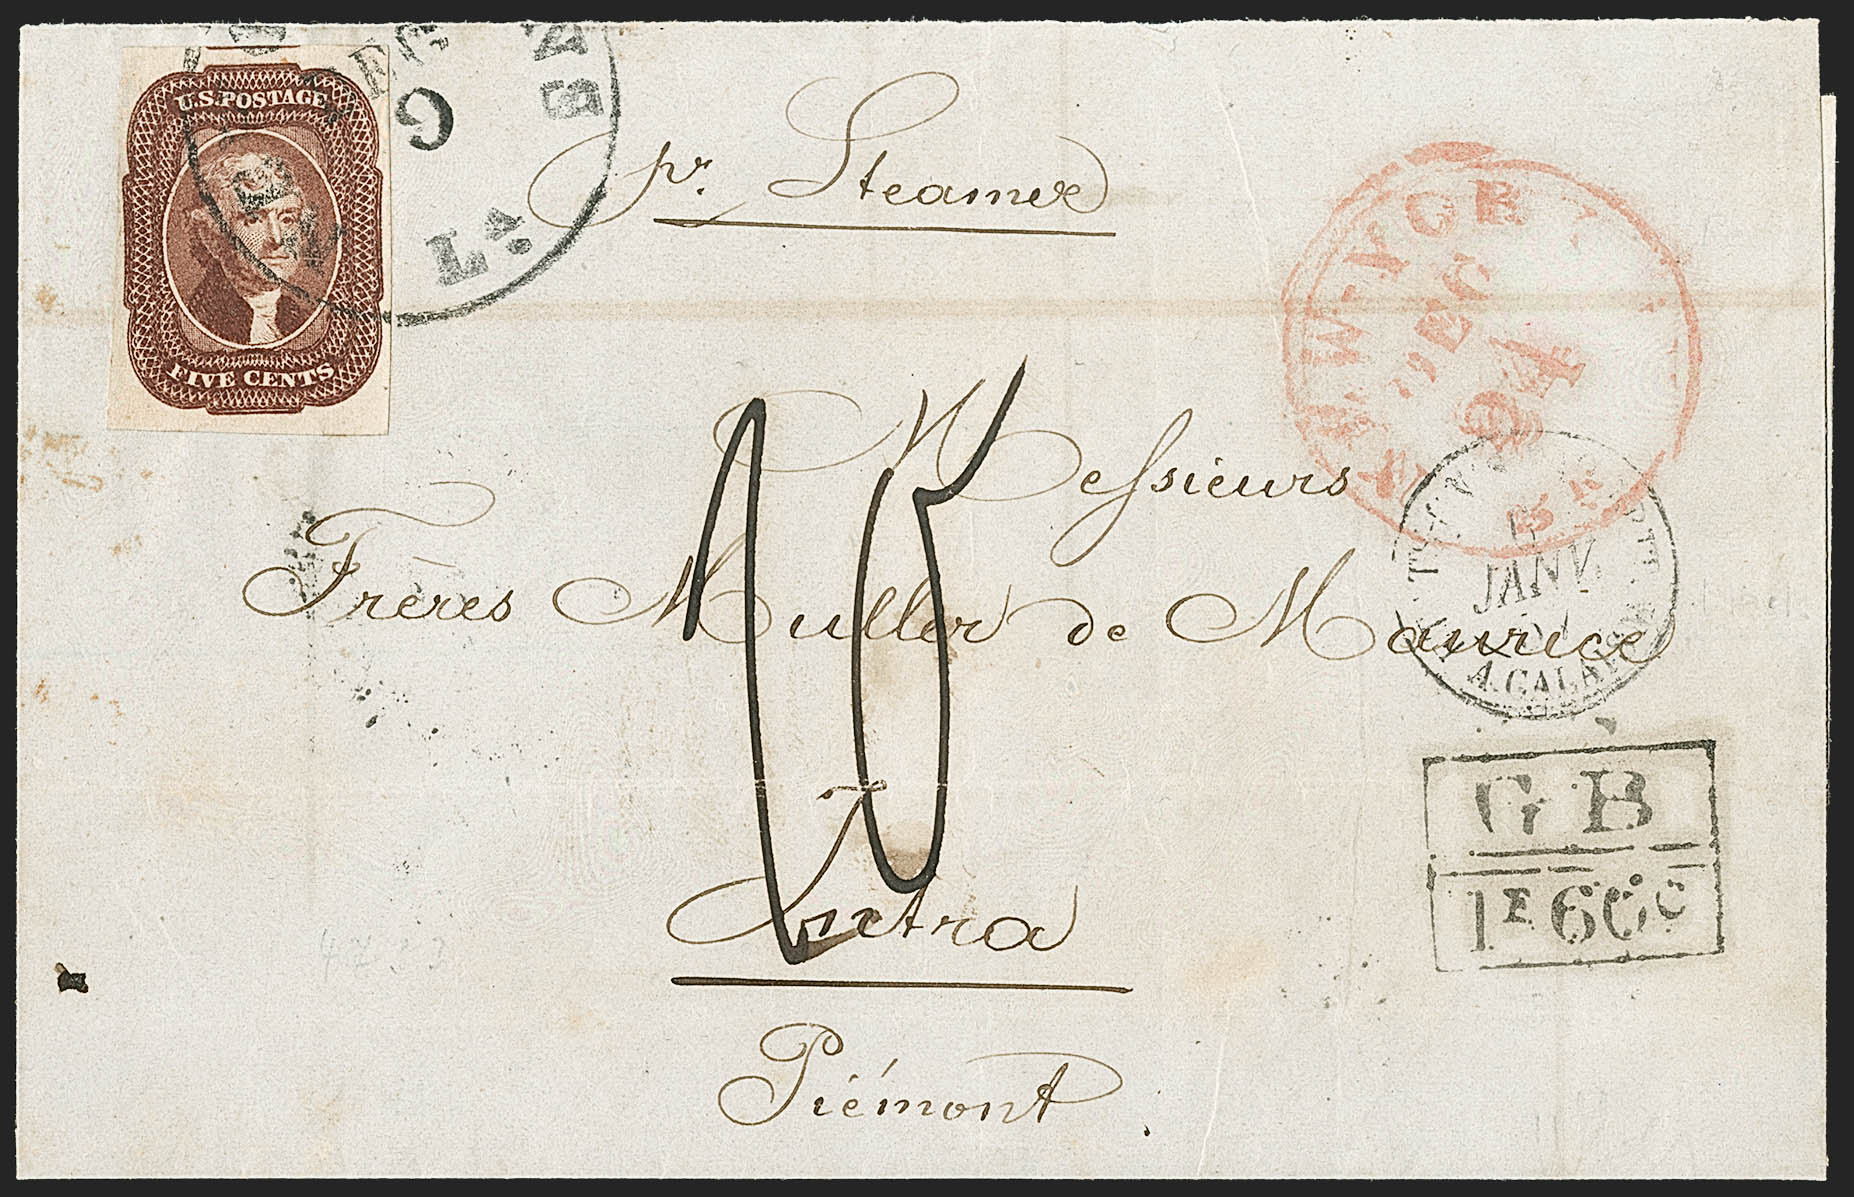 U.S. POSTAGE
FIVE CENTS
DEC
9
La.
pr. Steamer
NEW-YORK
DEC
24
Messieurs
Frères Muller de Maurice
Intra
Piémont
JANV.
A. CALAIS
G B
1F 60C